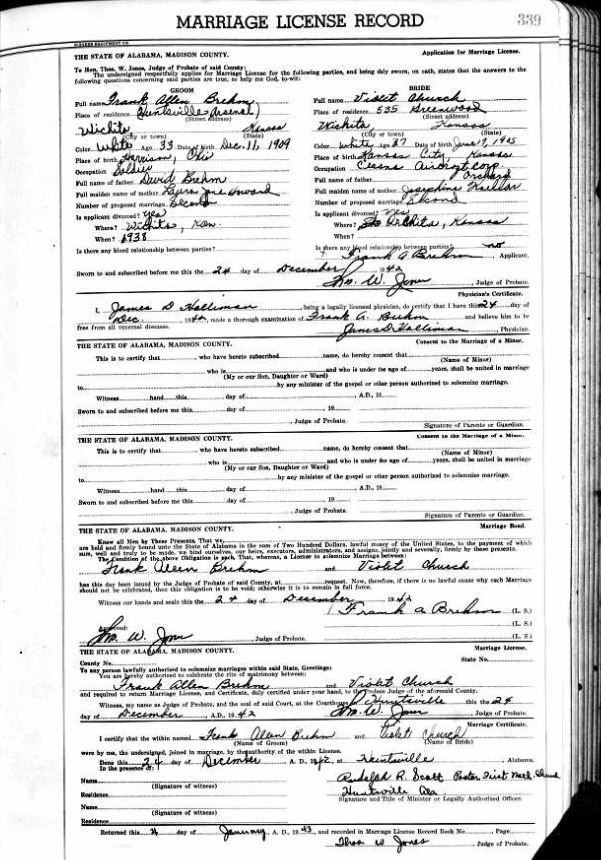 MARRIAGE LICENSE RECORD 339
THE STATE OF ALABAMA, MADISON COUNTY. Application for Marriage License.
To Hon. Thos. W. Jones, Judge of Probate of said County:
The undersigned respectfully applies for Marriage License for the following parties, and being duly sworn, on oath, states that the answers to the
following questions concerning said parties are true, so help me God, to-wit:
GROOM BRIDE
Full name Frank Allen Brehm Full name Violet Church
Place of residence Huntsville Arsenal Place of residence 535 Greenwood
(Street address) (Street address)
Wichita Kansas Wichita Kansas
(City or town) (State) (City or town) (State)
Color White Age 33 Date of birth Dec. 11, 1909 Color White Age 37 Date of birth June 19, 1905
Place of birth Harrison, Ohio Place of birth Kansas City, Kansas
Occupation Soldier Occupation Cessna Aircraft Corp.
Full name of father David Brehm Full name of father Orchard
Full maiden name of mother Laura Jane Howard Full maiden name of mother Josephine
Number of proposed marriage Second Number of proposed marriage Second
Is applicant divorced? Yes Is applicant divorced? Yes
Where? Wichita, Kan. Where? Wichita, Kansas
When? 1938 When?
Is there any blood relationship between parties? Is there any blood relationship between parties? no
Frank A Brehm, Applicant.
Sworn to and subscribed before me this the 24 day of December 1942
Thos. W. Jones, Judge of Probate.
Physician's Certificate.
I, James D Halliman being a legally licensed physician, do certify that I have this 24 day of
Dec., 1942, made a thorough examination of Frank A. Brehm and believe him to be
free from all venereal diseases. James D Halliman, Physician.
THE STATE OF ALABAMA, MADISON COUNTY. Consent to the Marriage of a Minor.
This is to certify that, who have hereto subscribed name, do hereby consent that
(Name of Minor)
who is and who is under the age of years, shall be united in marriage
(My or our Son, Daughter or Ward)
to by any minister of the gospel or other person authorized to solemnize marriage.
Witness hand this day of, A.D., 19
Sworn to and subscribed before me this day of, 19
, Judge of Probate.
Signature of Parents or Guardian.
THE STATE OF ALABAMA, MADISON COUNTY. Consent to the Marriage of a Minor.
This is to certify that, who have hereto subscribed name, do hereby consent that
(Name of Minor)
who is and who is under the age of years, shall be united in marriage
(My or our Son, Daughter or Ward)
to by any minister of the gospel or other person authorized to solemnize marriage.
Witness hand this day of, A.D., 19
Sworn to and subscribed before me this day of, 19
, Judge of Probate.
Signature of Parents or Guardian.
THE STATE OF ALABAMA, MADISON COUNTY. Marriage Bond.
Know all Men by These Presents, That we,
are held and firmly bound unto the State of Alabama in the sum of Two Hundred Dollars, lawful money of the United States, to the payment of which
sum, well and truly to be made, we bind ourselves, our heirs, executors, administrators, and assigns, jointly and severally, firmly by these presents.
The Condition of the above Obligation is such, That, whereas, a License to solemnize Marriage between:
Frank Allen Brehm and Violet Church
has this day been issued by the Judge of Probate of said County, at request. Now, therefore, if there is no lawful cause why such Marriage
should not be celebrated, then this obligation is to be void; otherwise it is to remain in full force.
Witness our hands and seals this the 24 day of December 1942
Frank A Brehm (L. S.)
(L. S.)
Approved:
Thos. W. Jones, Judge of Probate. (L. S.)
THE STATE OF ALABAMA, MADISON COUNTY. Marriage License.
County No. State No.
To any person lawfully authorized to solemnize marriages within said State, Greetings:
You are hereby authorized to celebrate the rite of matrimony between:
Frank Allen Brehm and Violet Church
and required to return Marriage License, and Certificate, duly certified under your hand, to the Probate Judge of the aforesaid County.
Witness, my name as Judge of Probate, and the seal of said Court, at the Courthouse Huntsville this the 24
day of December, A.D., 1942 Thos. W. Jones, Judge of Probate.
Marriage Certificate.
I certify that the within named Frank Allen Brehm and Violet Church
(Name of Groom) (Name of Bride)
were by me, the undersigned, joined in marriage, by the authority of the within License.
Done this 24 day of December A. D., 1942 at Huntsville Alabama.
In the presence of:
Name Rudolph R. Scott Pastor First Meth. Church
(Signature of witness) Huntsville Ala
Residence Signature and Title of Minister or Legally Authorized Officer.
Name
(Signature of witness)
Residence
Returned this 4 day of January, A. D., 1943, and recorded in Marriage License Record Book No., Page
Thos W Jones, Judge of Probate.